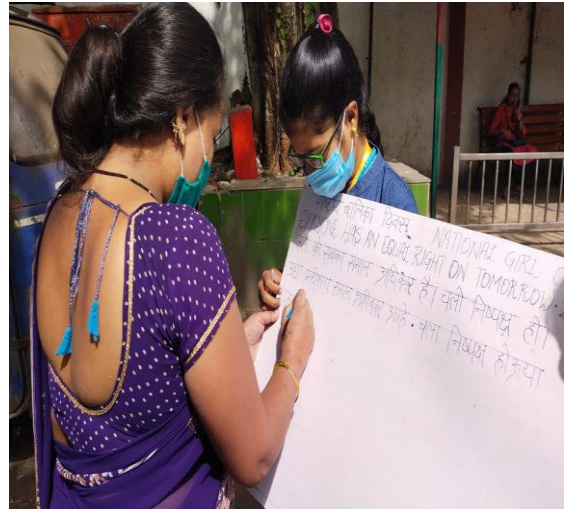 बालिका दिवस, NATIONAL GIRL
EVERYONE HAS AN EQUAL RIGHT ON TOMORROW.
का सबका समान अधिकार है। चलो निष्पक्ष हो।
समान अधिकार आहे. चला निष्पक्ष होऊया